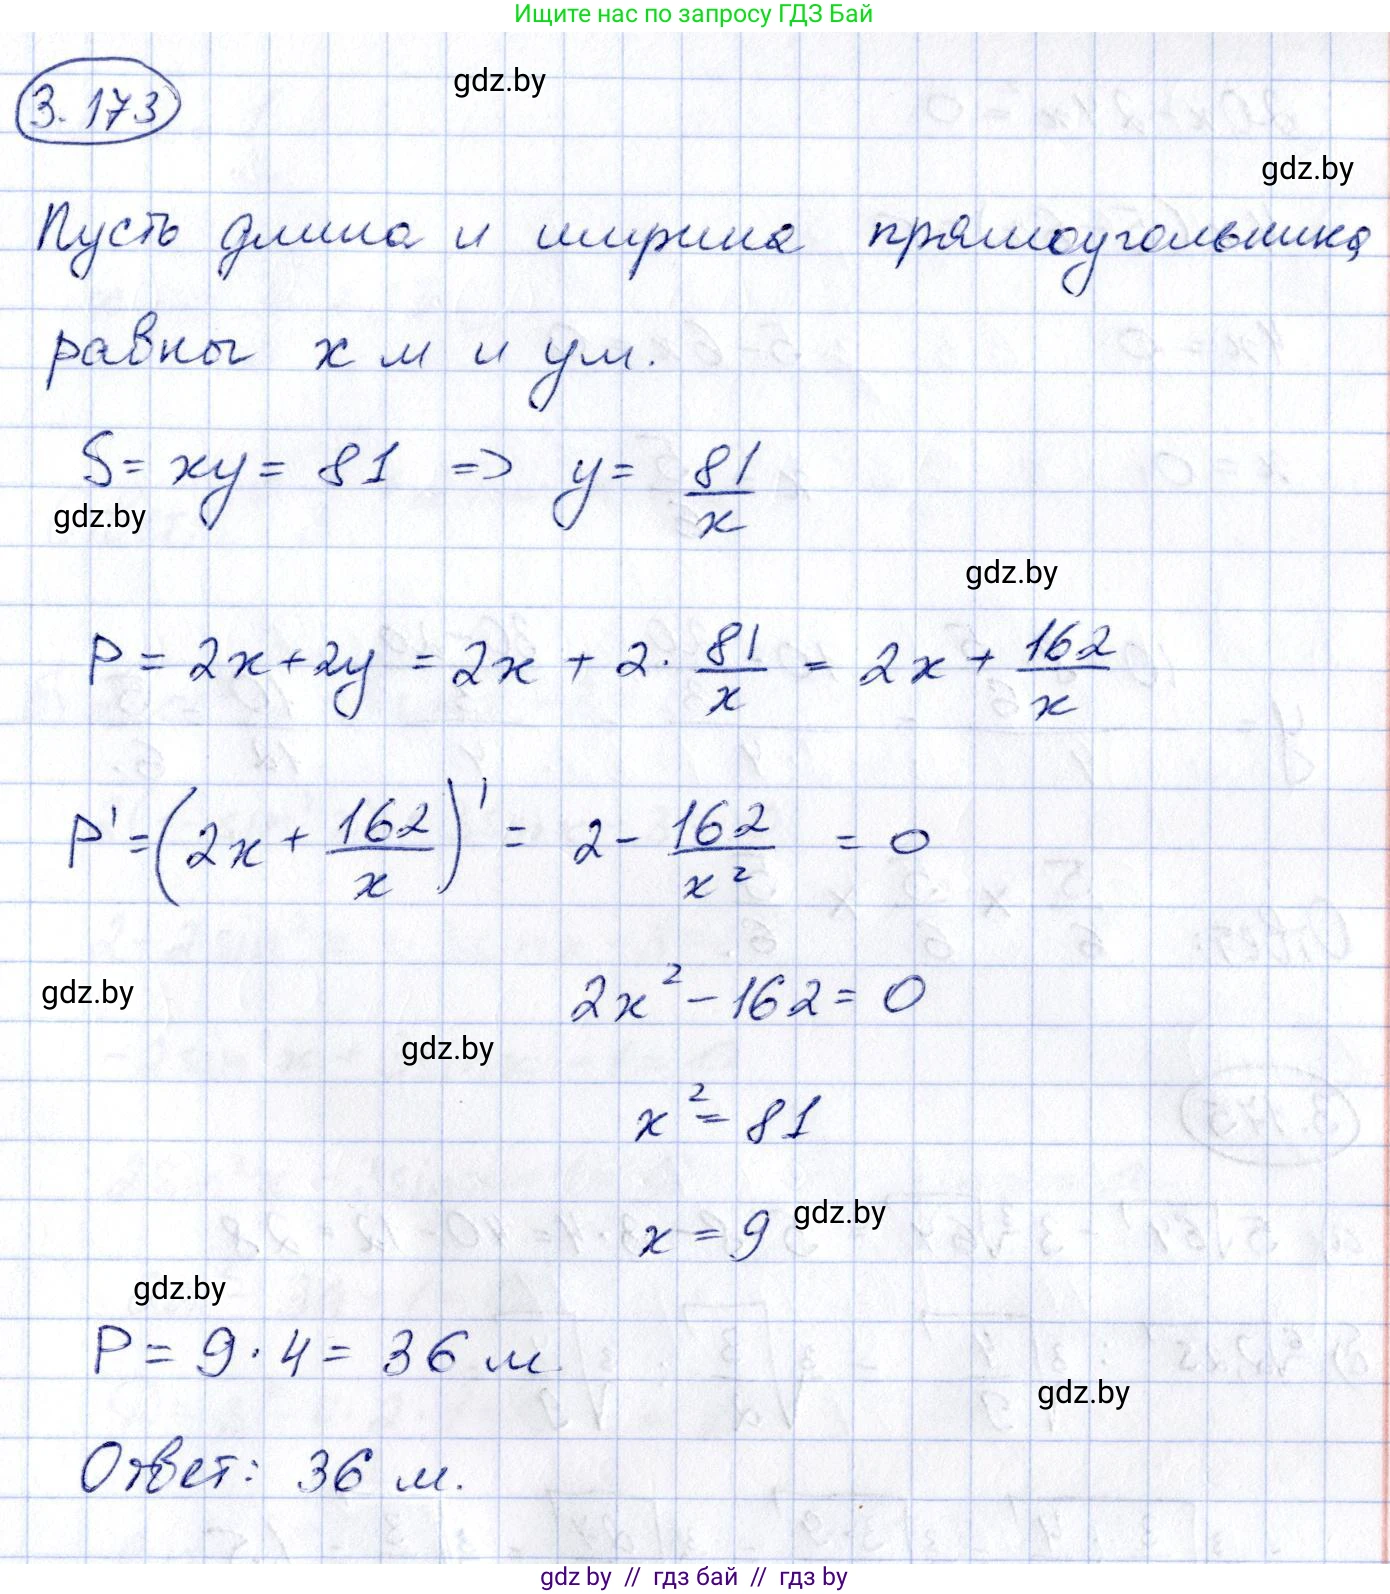 Ищите нас по запросу ГДЗ Бай
3.173
gdz.by
gdz.by
Пусть длина и ширина прямоугольника
равны x м и y м.
S = xy = 81 => y = 81/x
gdz.by
gdz.by
P = 2x + 2y = 2x + 2 · 81/x = 2x + 162/x
P' = (2x + 162/x)' = 2 - 162/x² = 0
gdz.by
2x² - 162 = 0
gdz.by
x² = 81
x = 9
gdz.by
gdz.by
P = 9 · 4 = 36 м
gdz.by
Ответ: 36 м.
gdz by // гдз бай // gdz by